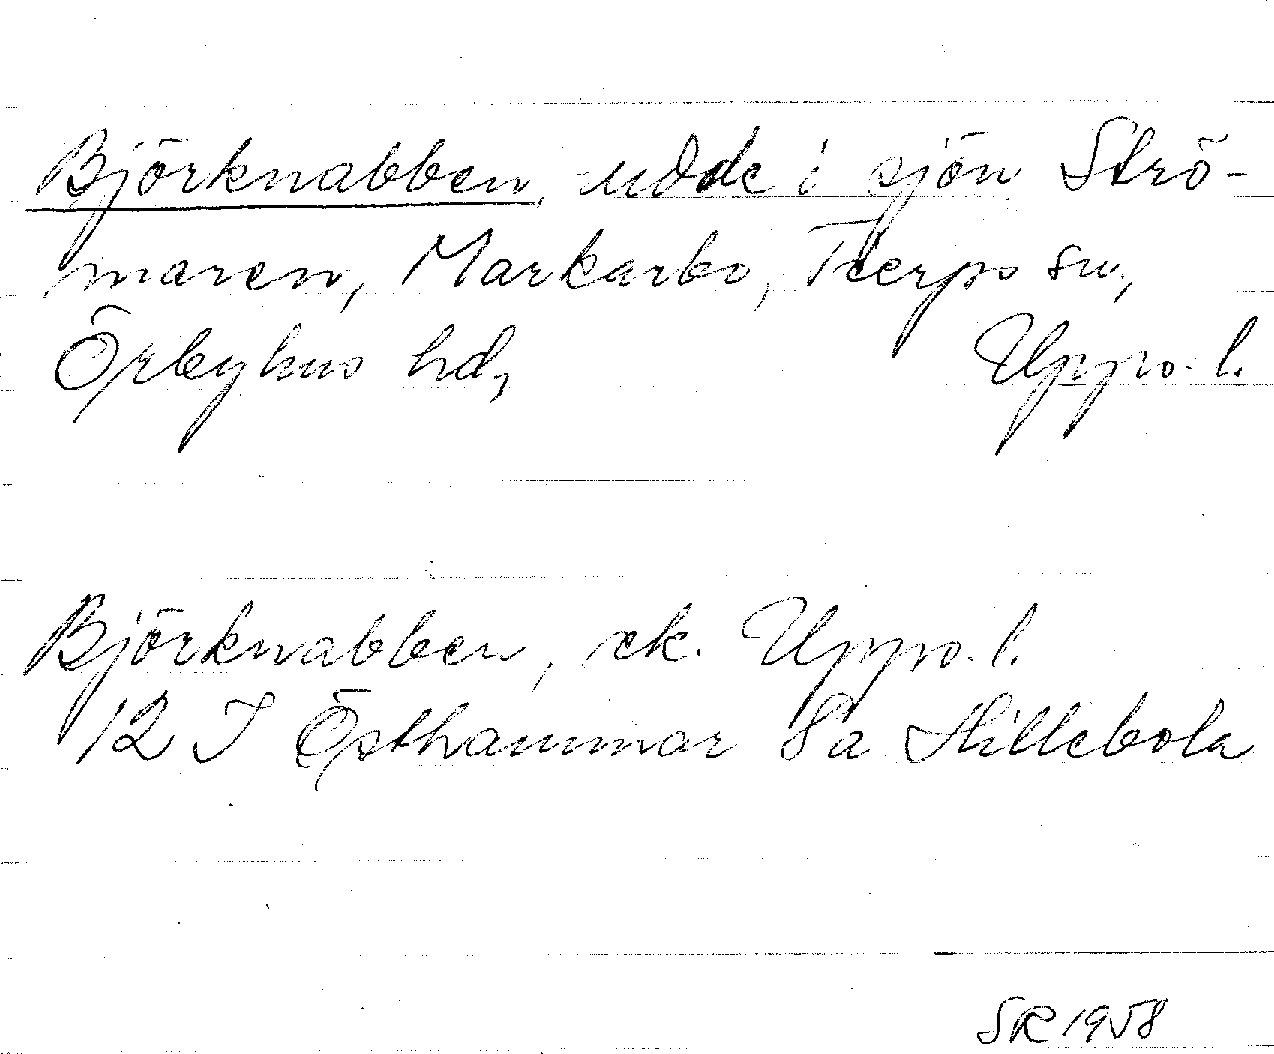 Björknabben, udde i sjön Strö-
maren, Markarbo, Tierps sn,
Örbyhus hd, Upps. l.
Björknabben, ek. Upps. l.
12 I Östhammar 8a Hillebola
SR 1958